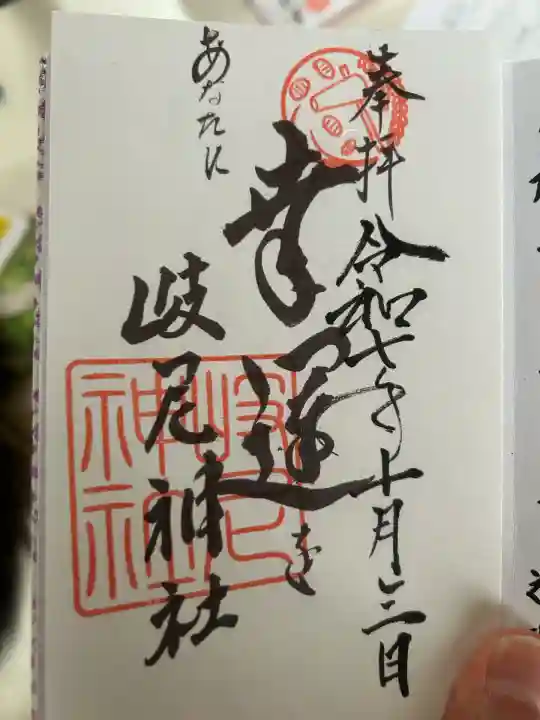 奉拝 令和七年十月三日
あなたに
幸運を
岐尼神社
岐尼神社